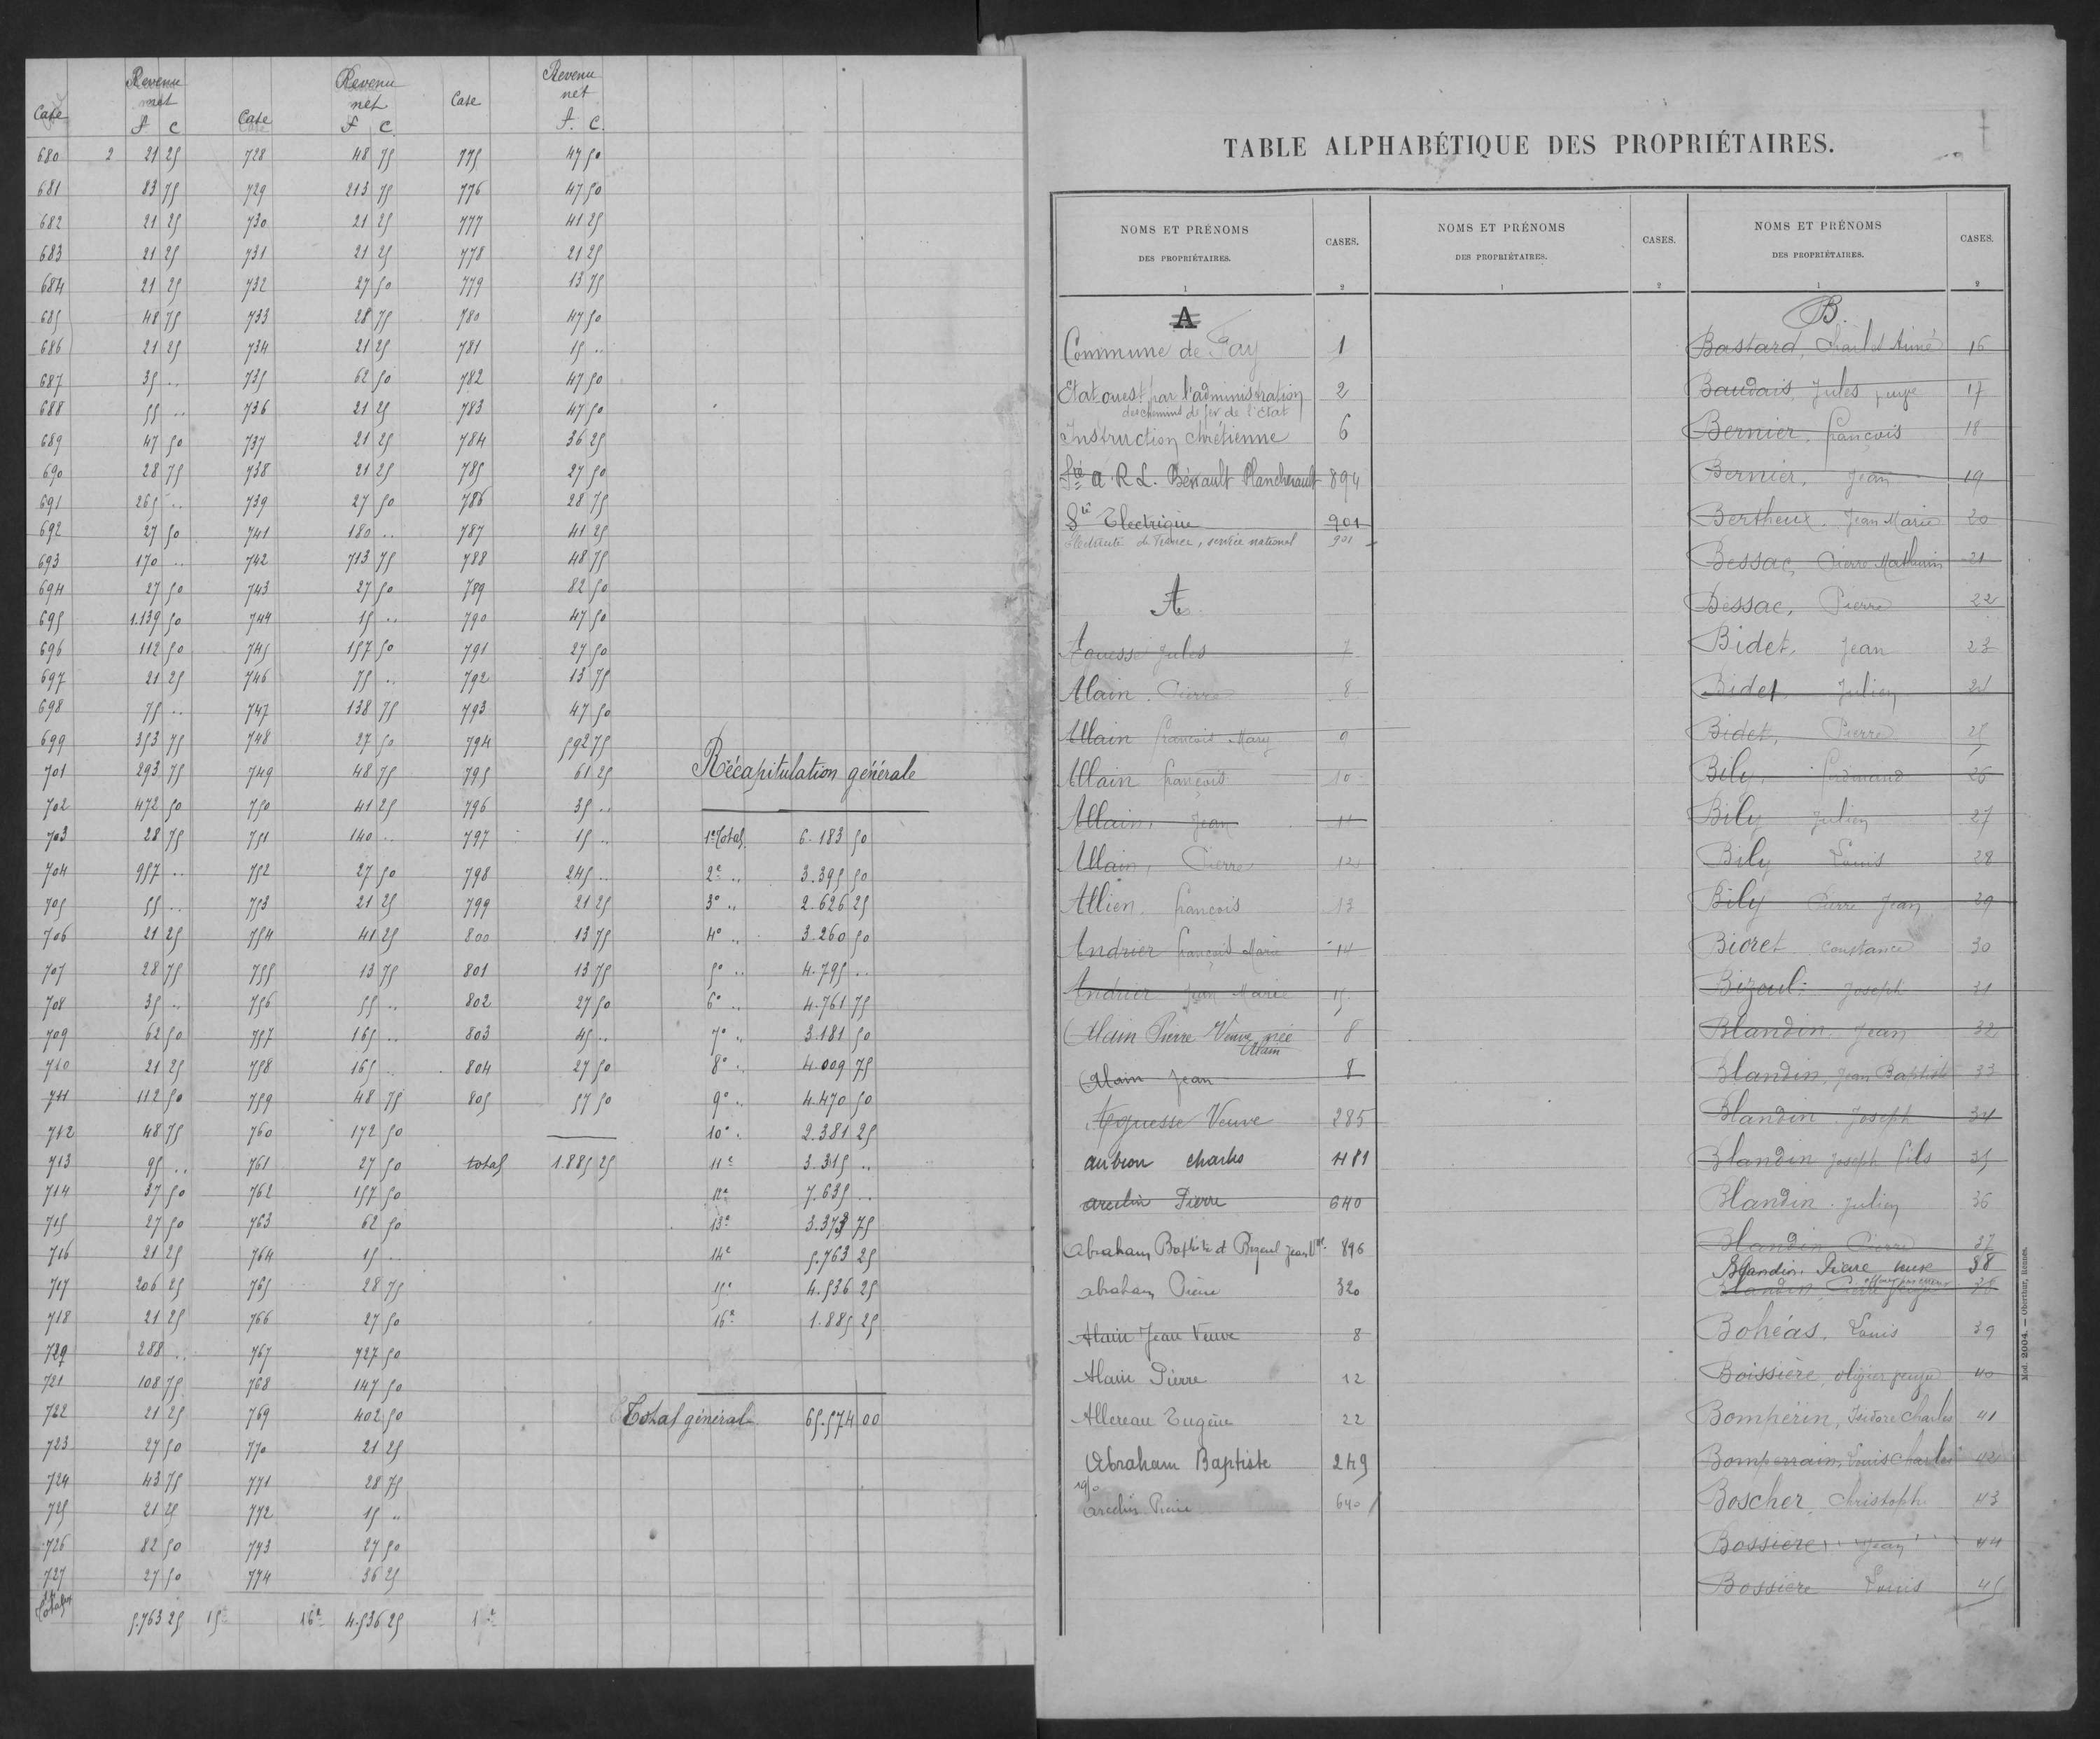 Case | Revenu net f c | Case | Revenu net f c | Case | Revenu net f. c.
680 | 21 25 | 728 | 48 75 | 775 | 47 50
681 | 83 75 | 729 | 213 75 | 776 | 47 50
682 | 21 25 | 730 | 21 25 | 777 | 41 25
683 | 21 25 | 731 | 21 25 | 778 | 21 25
684 | 21 25 | 732 | 27 50 | 779 | 13 75
685 | 48 75 | 733 | 28 75 | 780 | 47 50
686 | 21 25 | 734 | 21 25 | 781 | 15 ..
687 | 35 .. | 735 | 62 50 | 782 | 47 50
688 | 55 .. | 736 | 21 25 | 783 | 47 50
689 | 47 50 | 737 | 21 25 | 784 | 36 25
690 | 28 75 | 738 | 21 25 | 785 | 27 50
691 | 265 .. | 739 | 27 50 | 786 | 28 75
692 | 27 50 | 741 | 180 .. | 787 | 41 25
693 | 170 .. | 742 | 713 75 | 788 | 48 75
694 | 27 50 | 743 | 27 50 | 789 | 82 50
695 | 1.139 50 | 744 | 15 .. | 790 | 47 50
696 | 112 50 | 745 | 157 50 | 791 | 27 50
697 | 21 25 | 746 | 75 .. | 792 | 13 75
698 | 75 .. | 747 | 138 75 | 793 | 47 50
699 | 353 75 | 748 | 27 50 | 794 | 592 75
701 | 293 75 | 749 | 48 75 | 795 | 61 25
702 | 472 50 | 750 | 41 25 | 796 | 35 ..
703 | 28 75 | 751 | 140 .. | 797 | 15 ..
704 | 957 .. | 752 | 27 50 | 798 | 245 ..
705 | 55 .. | 753 | 21 25 | 799 | 21 25
706 | 21 25 | 754 | 41 25 | 800 | 13 75
707 | 28 75 | 755 | 13 75 | 801 | 13 75
708 | 35 .. | 756 | 55 .. | 802 | 27 50
709 | 62 50 | 757 | 165 .. | 803 | 45 ..
710 | 21 25 | 758 | 165 .. | 804 | 27 50
711 | 112 50 | 759 | 48 75 | 805 | 57 50
712 | 48 75 | 760 | 172 50
713 | 95 .. | 761 | 27 50 | total | 1.885 25
714 | 37 50 | 762 | 157 50
715 | 27 50 | 763 | 62 50
716 | 21 25 | 764 | 15 ..
717 | 206 25 | 765 | 28 75
718 | 21 25 | 766 | 27 50
729 | 288 .. | 767 | 727 50
721 | 108 75 | 768 | 147 50
722 | 21 25 | 769 | 402 50
723 | 27 50 | 770 | 21 25
724 | 43 75 | 771 | 28 75
725 | 21 25 | 772 | 15 ..
726 | 82 50 | 773 | 27 50
727 | 27 50 | 774 | 36 25
Totaux | 5.763 25 | 15e | 16e | 4.536 25
Récapitulation générale
1e Total | 6.183 50
2e .. | 3.395 50
3e .. | 2.626 25
4e .. | 3.260 50
5e .. | 4.795 ..
6e .. | 4.761 75
7e .. | 3.181 50
8e .. | 4.009 75
9e .. | 4.470 50
10e . | 2.381 25
11e | 3.315 ..
12e | 7.635 ..
13e | 3.373 75
14e | 5.763 25
15e | 4.536 25
16e | 1.885 25
Total général | 65.574 00
TABLE ALPHABÉTIQUE DES PROPRIÉTAIRES.
NOMS ET PRÉNOMS DES PROPRIÉTAIRES. | CASES. | NOMS ET PRÉNOMS DES PROPRIÉTAIRES. | CASES. | NOMS ET PRÉNOMS DES PROPRIÉTAIRES. | CASES.
1 | 2 | 1 | 2 | 1 | 2
A
Commune de Fay | 1
Etat ouest par l'administration | 2
des chemins de fer de l'Etat
Instruction chrétienne | 6
Sté a. R L. Bérrault Plancherault | 894
Sté Electrique | 901
Electricité de France, service national | 901
A
Aguesse Jules | 7
Alain Pierre | 8
Allain François Mary | 9
Allain François | 10
Allain, Jean | 11
Allain, Pierre | 12
Allien François | 13
Andrier François Marie | 14
Andrier Jean Marie | 15
Alain Pierre Veuve née | 8
Alain
Alain Jean | 8
Aguesse Veuve | 285
aubron charles | 481
arcelin Pierre | 640
Abraham Baptiste et Bizeul Jean | 896
abraham Pierre | 320
Alain Jean Veuve | 8
Alain Pierre | 12
Allereau Eugène | 22
Abraham Baptiste | 249
arcelin Pierre | 640
B.
Bastard, Charles Aimé | 16
Baudais, Jules, | 17
Bernier, François | 18
Bernier, Jean | 19
Bertheux, Jean Marie | 20
Bessac, Pierre Mathurin | 21
Bessac, Pierre | 22
Bidet, Jean | 23
Bidet, Julien | 24
Bidet, Pierre | 25
Bily, Ferdinand | 26
Bily Julien | 27
Bily Louis | 28
Bily Pierre Jean | 29
Bioret, Constance | 30
Bizeul, Joseph | 31
Blandin, Jean | 32
Blandin, Jean Baptiste | 33
Blandin, Joseph | 34
Blandin Joseph fils | 35
Blandin, Julien | 36
Blandin Pierre | 37
Blandin Pierre veuve | 38
Blandin, | 38
Bohéas, Louis | 39
Boissière, | 40
Bompérin, Isidore Charles | 41
Bomperrain, Louis Charles | 42
Boscher, Christophe | 43
Bossière, Jean | 44
Bossière Louis | 45
Mod. 2004. — Oberthur, Rennes.